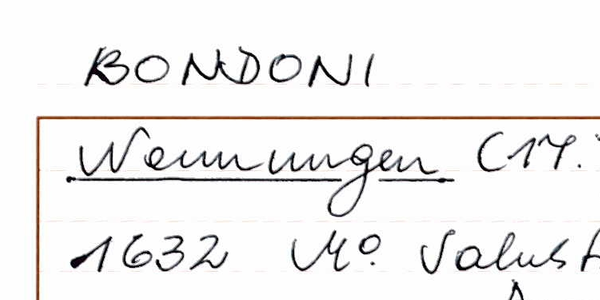 BONDONI
Nennungen (17.
1632 Mo. Salust